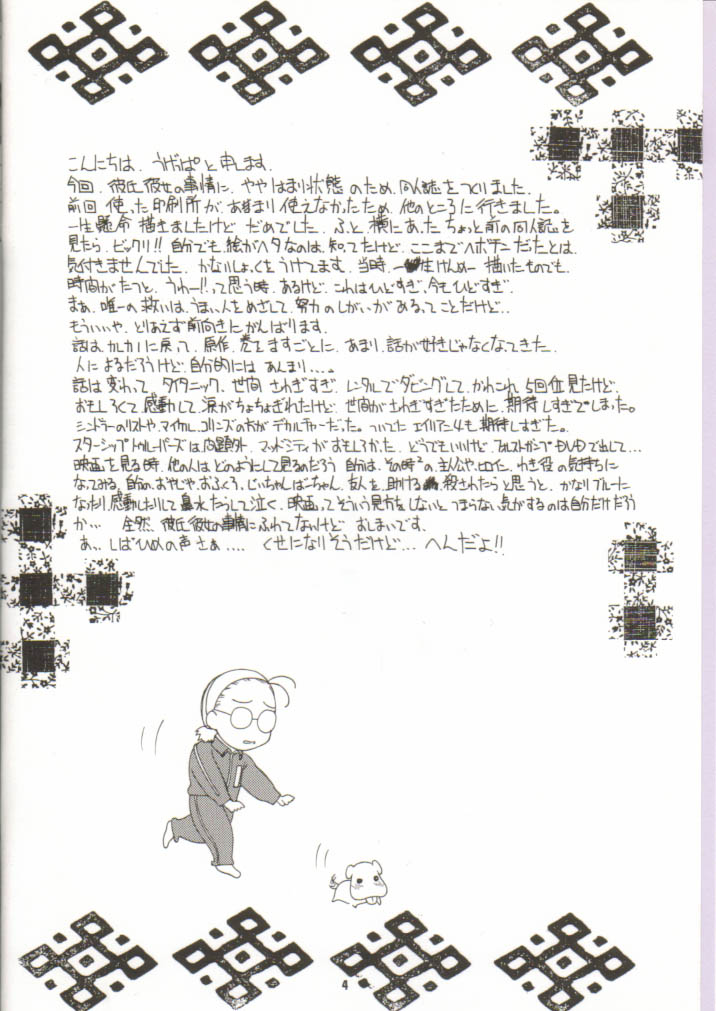 こんにちは、うげっぱと申します。
今回、彼氏彼女の事情に、ややはまり状態のため、同人誌をつくりました。
前回使った印刷所が、あまり使えなかったため、他のところに行きました。
一生懸命描きましたけど、だめでした。ふと横にあった、ちょっと前の同人誌を
見たら、ビックリ!!自分でも、絵がヘタなのは、知ってたけど、ここまでヘボチンだったとは、
気付きませんでした。かないしょっくをうけてます。当時、一生けんめー描いたものでも、
時間がたつと、うわー!!って思う時、あるけど、これはひどすぎ、今もひどすぎ。
まぁ、唯一の救いは、うまい人をめざして、努力のしがいがあるってことだけど..
もういいや、とりあえず前向きにがんばります。
話は、カレカノに戻って、原作、巻をますごとに、あまり、話が好きじゃなくなてきた、
人によるだろうけど、自分的には、あんまり....。
話は変わって、タイタニック、世間さわぎすぎ、レンタルでダビングして、かれこれ5回位見たけど、
おもしろくて感動して涙がちょちょぎれたけど、世間がさわぎすぎたために、期待しすぎでしまった。
シンドラーのリストや、マイケル、コリンズの方がデカルチャーだった。ついでにエイリアン4も、期待しすぎた。
スターシップトゥルーパーズは問題外、マッドシティがおもしろかった、どうでもいいけど、フォレストガンプもDVDで出して...
映画を見る時、他の人は、どのようにして見るのだろう、自分は、その時²の主人公や、ヒロイン、わき役の気持ちに
なってみる、自分のおやじや、おふくろ、じいちゃんばーちゃん、友人を、助ける、殺されたらと思うと、かなりブルーに
なったり、感動したりして鼻水たらして泣く、映画ってそういう見方をしないと、つまらない気がするのは自分だけだろう
か... 全然、彼氏彼女の事情にふれてないけど、おしまいです。
あっ、しばひめの声さぁ.... くせになりそうだけど... へんだよ!!
4